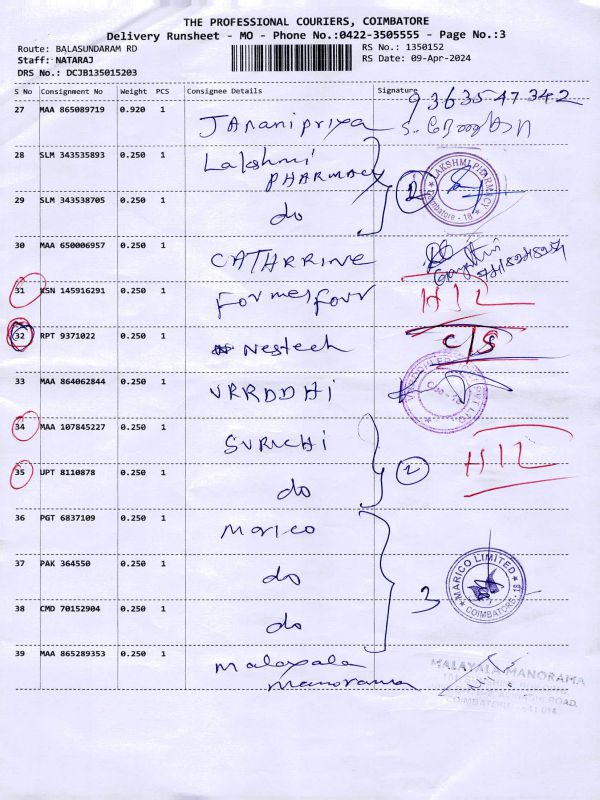 THE PROFESSIONAL COURIERS, COIMBATORE
Delivery Runsheet - MO - Phone No.:0422-3505555 - Page No.:3
Route: BALASUNDARAM RD RS No.: 1350152
Staff: NATARAJ RS Date: 09-Apr-2024
DRS No.: DCJB135015203
S No Consignment No Weight PCS Consignee Details Signature
27 MAA 865089719 0.920 1 JAnanipriya 9363547342
28 SLM 343535893 0.250 1 Lakshmi
PHARMACY 2 LAKSHMI PHARMACY Coimbatore - 18
29 SLM 343538705 0.250 1 do
30 MAA 650006957 0.250 1 CATHRRINE
31 KSN 145916291 0.250 1 Formesfour H12
32 RPT 9371022 0.250 1 Nestech C/S
33 MAA 864062844 0.250 1 VRRDDHI
34 MAA 107845227 0.250 1 SURUCHI 2 H12
35 UPT 8110878 0.250 1 do
36 PGT 6837109 0.250 1 Marico
37 PAK 364550 0.250 1 do MARICO LIMITED COIMBATORE - 18
38 CMD 70152904 0.250 1 do 3
39 MAA 865289353 0.250 1 Malayala
Manorama MALAYALA MANORAMA
ROAD,
COIMBATORE